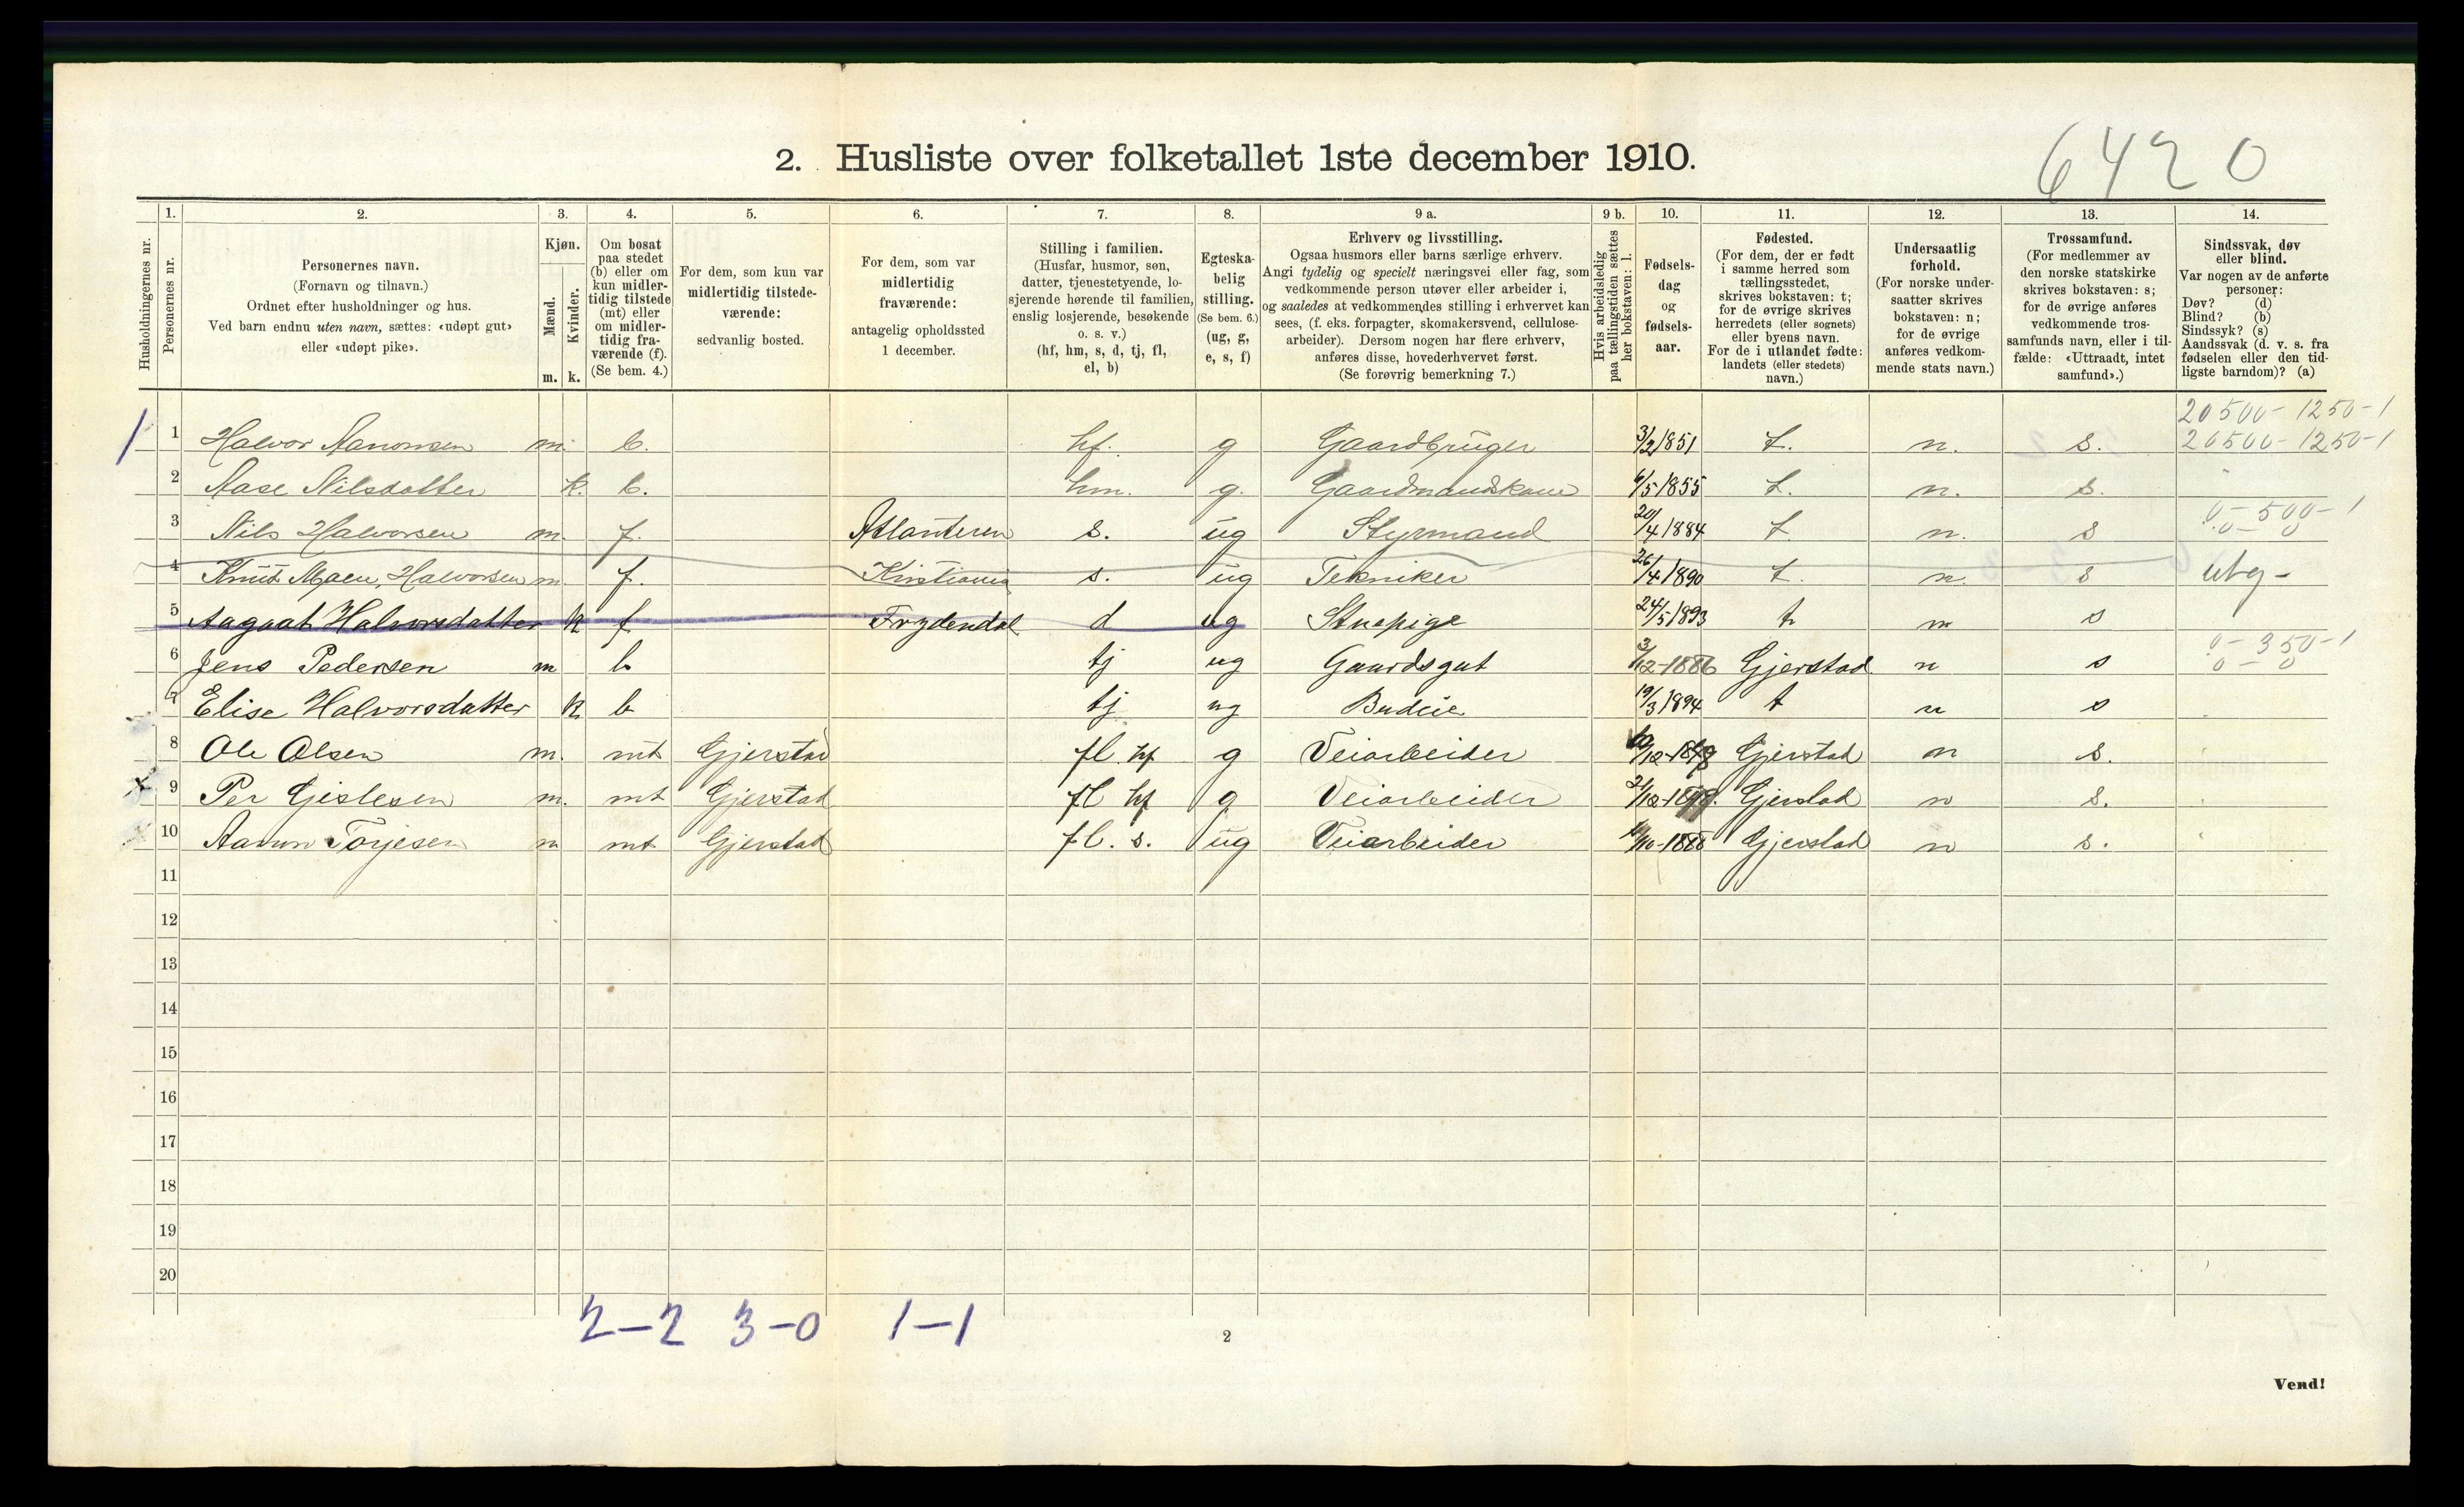 6420
2. Husliste over folketallet 1ste december 1910.
Husholdningernes nr.
1.
Personernes nr.
2.
Personernes navn.
(Fornavn og tilnavn.)
Ordnet efter husholdninger og hus.
Ved barn endnu uten navn, sættes: «udøpt gut»
eller «udøpt pike».
3.
Kjøn.
Mænd.
Kvinder.
m. k.
4.
Om bosat
paa stedet
(b) eller om
kun midler-
tidig tilstede
(mt) eller
om midler-
tidig fra-
værende (f).
(Se bem. 4.)
5.
For dem, som kun var
midlertidig tilstede-
værende:
sedvanlig bosted.
6.
For dem, som var
midlertidig
fraværende:
antagelig opholdssted
1 december.
7.
Stilling i familien.
(Husfar, husmor, søn,
datter, tjenestetyende, lo-
sjerende hørende til familien,
enslig losjerende, besøkende
o. s. v.)
(hf, hm, s, d, tj, fl,
el, b)
8.
Egteska-
belig
stilling.
(Se bem. 6.)
(ug, g,
e, s, f)
9 a.
Erhverv og livsstilling.
Ogsaa husmors eller barns særlige erhverv.
Angi tydelig og specielt næringsvei eller fag, som
vedkommende person utøver eller arbeider i,
og saaledes at vedkommendes stilling i erhvervet kan
sees, (f. eks. forpagter, skomakersvend, cellulose-
arbeider). Dersom nogen har flere erhverv,
anføres disse, hovederhvervet først.
(Se forøvrig bemerkning 7.)
9 b.
Hvis arbeidsledig
paa tællingstiden sættes
her bokstaven: l.
10.
Fødsels-
dag
og
fødsels-
aar.
11.
Fødested.
(For dem, der er født
i samme herred som
tællingsstedet,
skrives bokstaven: t;
for de øvrige skrives
herredets (eller sognets)
eller byens navn.
For de i utlandet fødte:
landets (eller stedets)
navn.)
12.
Undersaatlig
forhold.
(For norske under-
saatter skrives
bokstaven: n;
for de øvrige
anføres vedkom-
mende stats navn.)
13.
Trossamfund.
(For medlemmer av
den norske statskirke
skrives bokstaven: s;
for de øvrige anføres
vedkommende tros-
samfunds navn, eller i til-
fælde: «Uttraadt, intet
samfund».)
14.
Sindssvak, døv
eller blind.
Var nogen av de anførte
personer:
Døv? (d)
Blind? (b)
Sindssyk? (s)
Aandssvak (d. v. s. fra
fødselen eller den tid-
ligste barndom)? (a)
20500-1250-1
1 1 Halvor Aanonsen m. b. hf. g Gaardbruger 3/2 1851 t. n. s. 20500-1250-1
2 Aase Nilsdatter k. b. hm. g. Gaardmandskone 6/5 1855 t. n. s.
0-500-1
3 Nils Halvorsen m. f. Atlanteren s. ug Styrmand 20/4 1884 t. n. s 0-0
4 Knut Halvorsen m. f. Kristiania s. ug Tekniker 26/4 1890 t. n. s utg-
5 Aagaat Halvorsdatter k f Frydendal d ug Stuepige 24/5 1893 t n s
0-350-1
6 Jens Pedersen m b tj ug Gaardsgut 3/12-1886 Gjerstad n s 0-0
7 Elise Halvorsdatter k b tj ug Budeie 19/3 1894 t n s
8 Ole Olsen m. mt Gjerstad fl. hf g Veiarbeider Gjerstad n s.
9 Per Gislesen m. mt Gjerstad fl hf g Veiarbeider Gjerstad n s.
10 Torjesen m mt Gjerstad fl. s. ug Veiarbeider Gjerstad n s.
11
12
13
14
15
16
17
18
19
20
2-2 3-0 1-1
2
Vend!